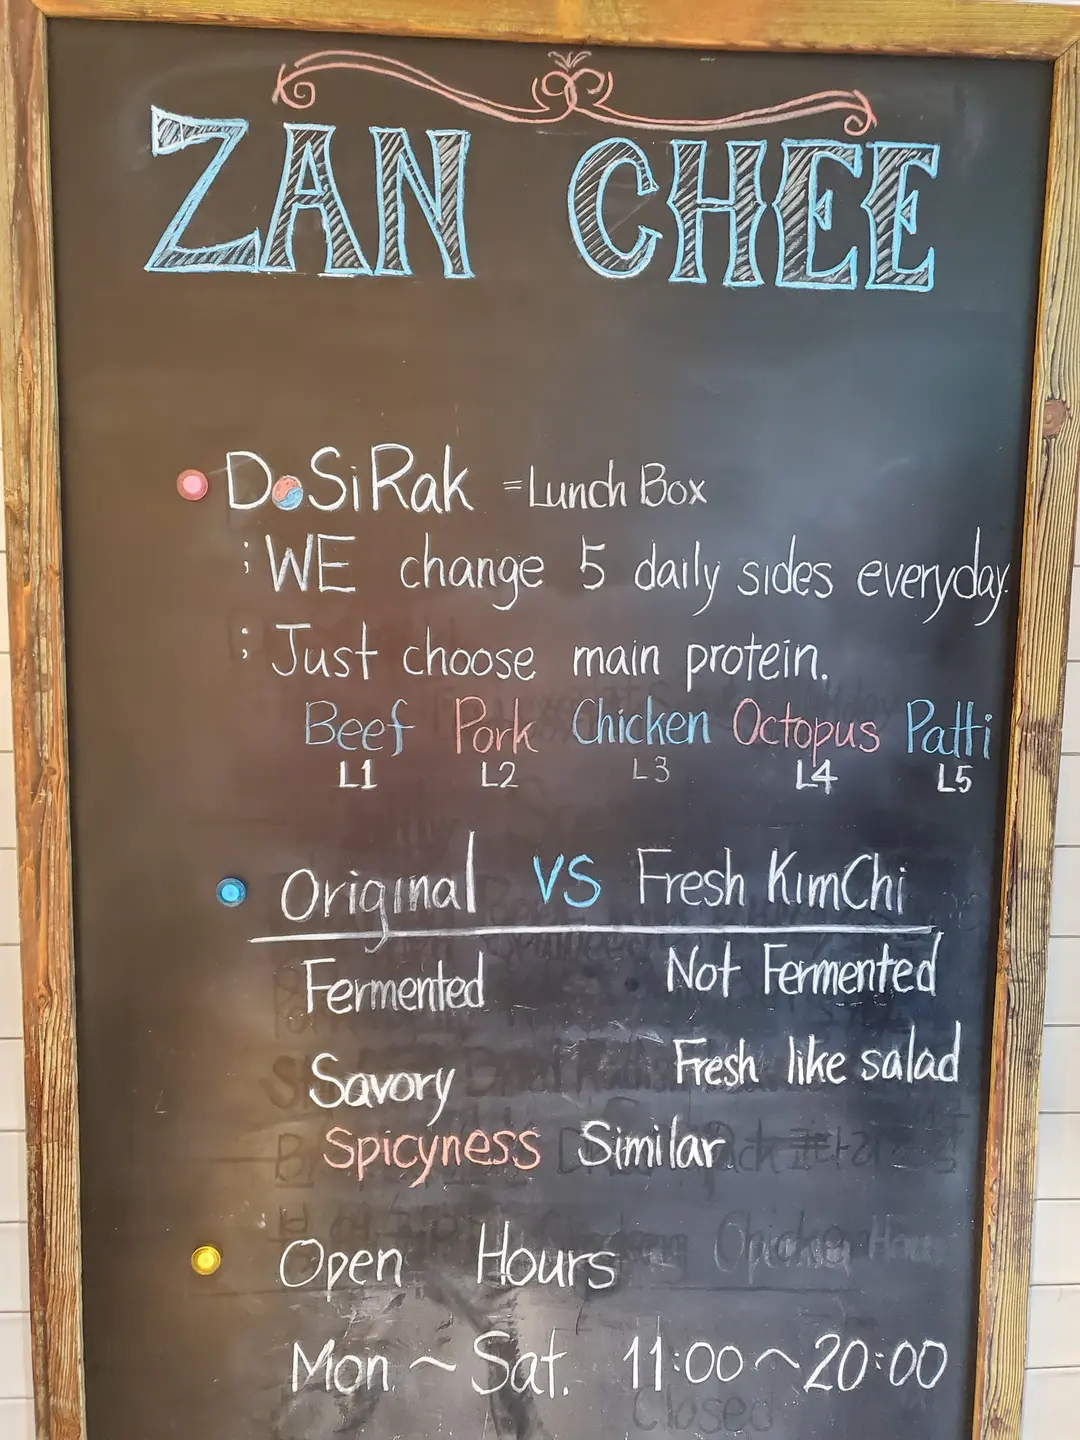 ZAN CHEE
DoSiRak = Lunch Box
; WE change 5 daily sides everyday.
; Just choose main protein.
Beef Pork Chicken Octopus Patti
L1 L2 L3 L4 L5
Original VS Fresh KimChi
Fermented Not Fermented
Savory Fresh like salad
Spicyness Similar
Open Hours
Mon. ~ Sat. 11:00 ~ 20:00
Closed